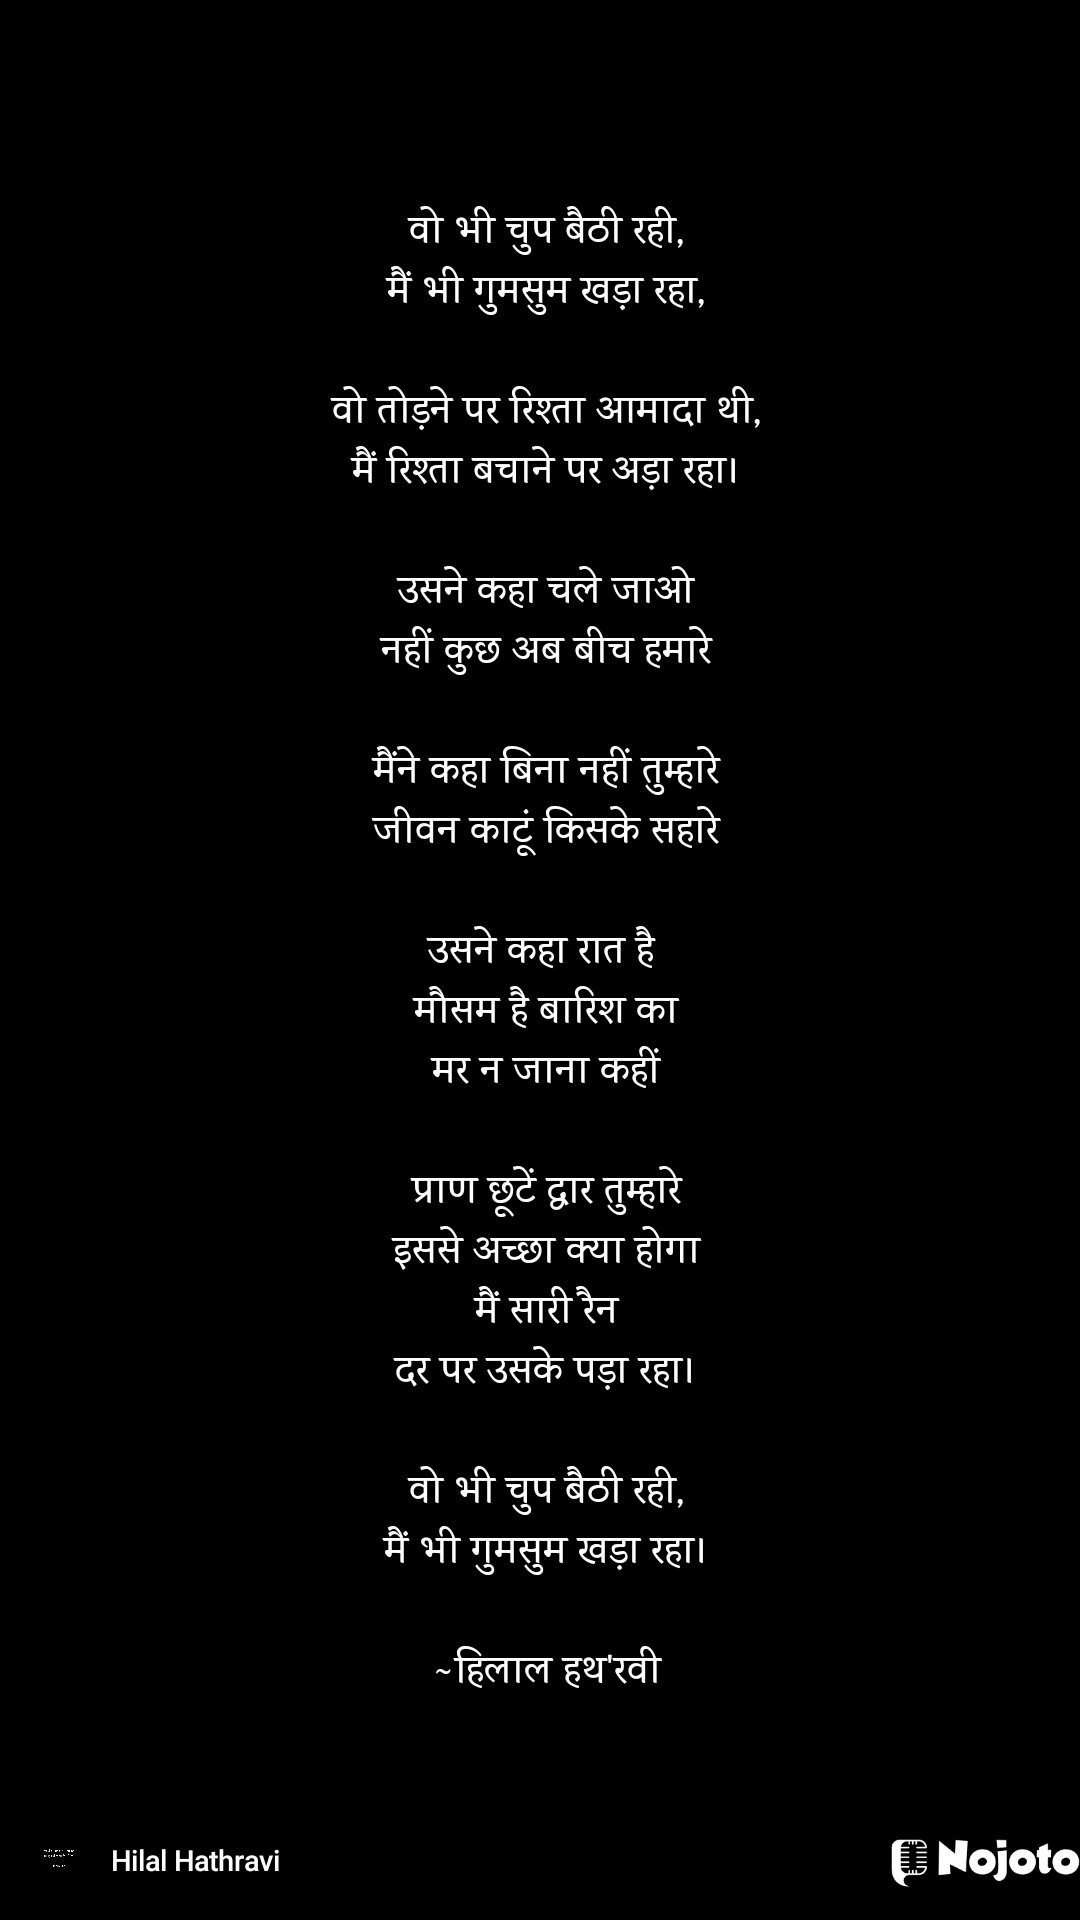 वो भी चुप बैठी रही,
मैं भी गुमसुम खड़ा रहा,
वो तोड़ने पर रिश्ता आमादा थी,
मैं रिश्ता बचाने पर अड़ा रहा।
उसने कहा चले जाओ
नहीं कुछ अब बीच हमारे
मैंने कहा बिना नहीं तुम्हारे
जीवन काटूं किसके सहारे
उसने कहा रात है
मौसम है बारिश का
मर न जाना कहीं
प्राण छूटें द्वार तुम्हारे
इससे अच्छा क्या होगा
मैं सारी रैन
दर पर उसके पड़ा रहा।
वो भी चुप बैठी रही,
मैं भी गुमसुम खड़ा रहा।
~हिलाल हथ'रवी
Hilal Hathravi
Nojoto